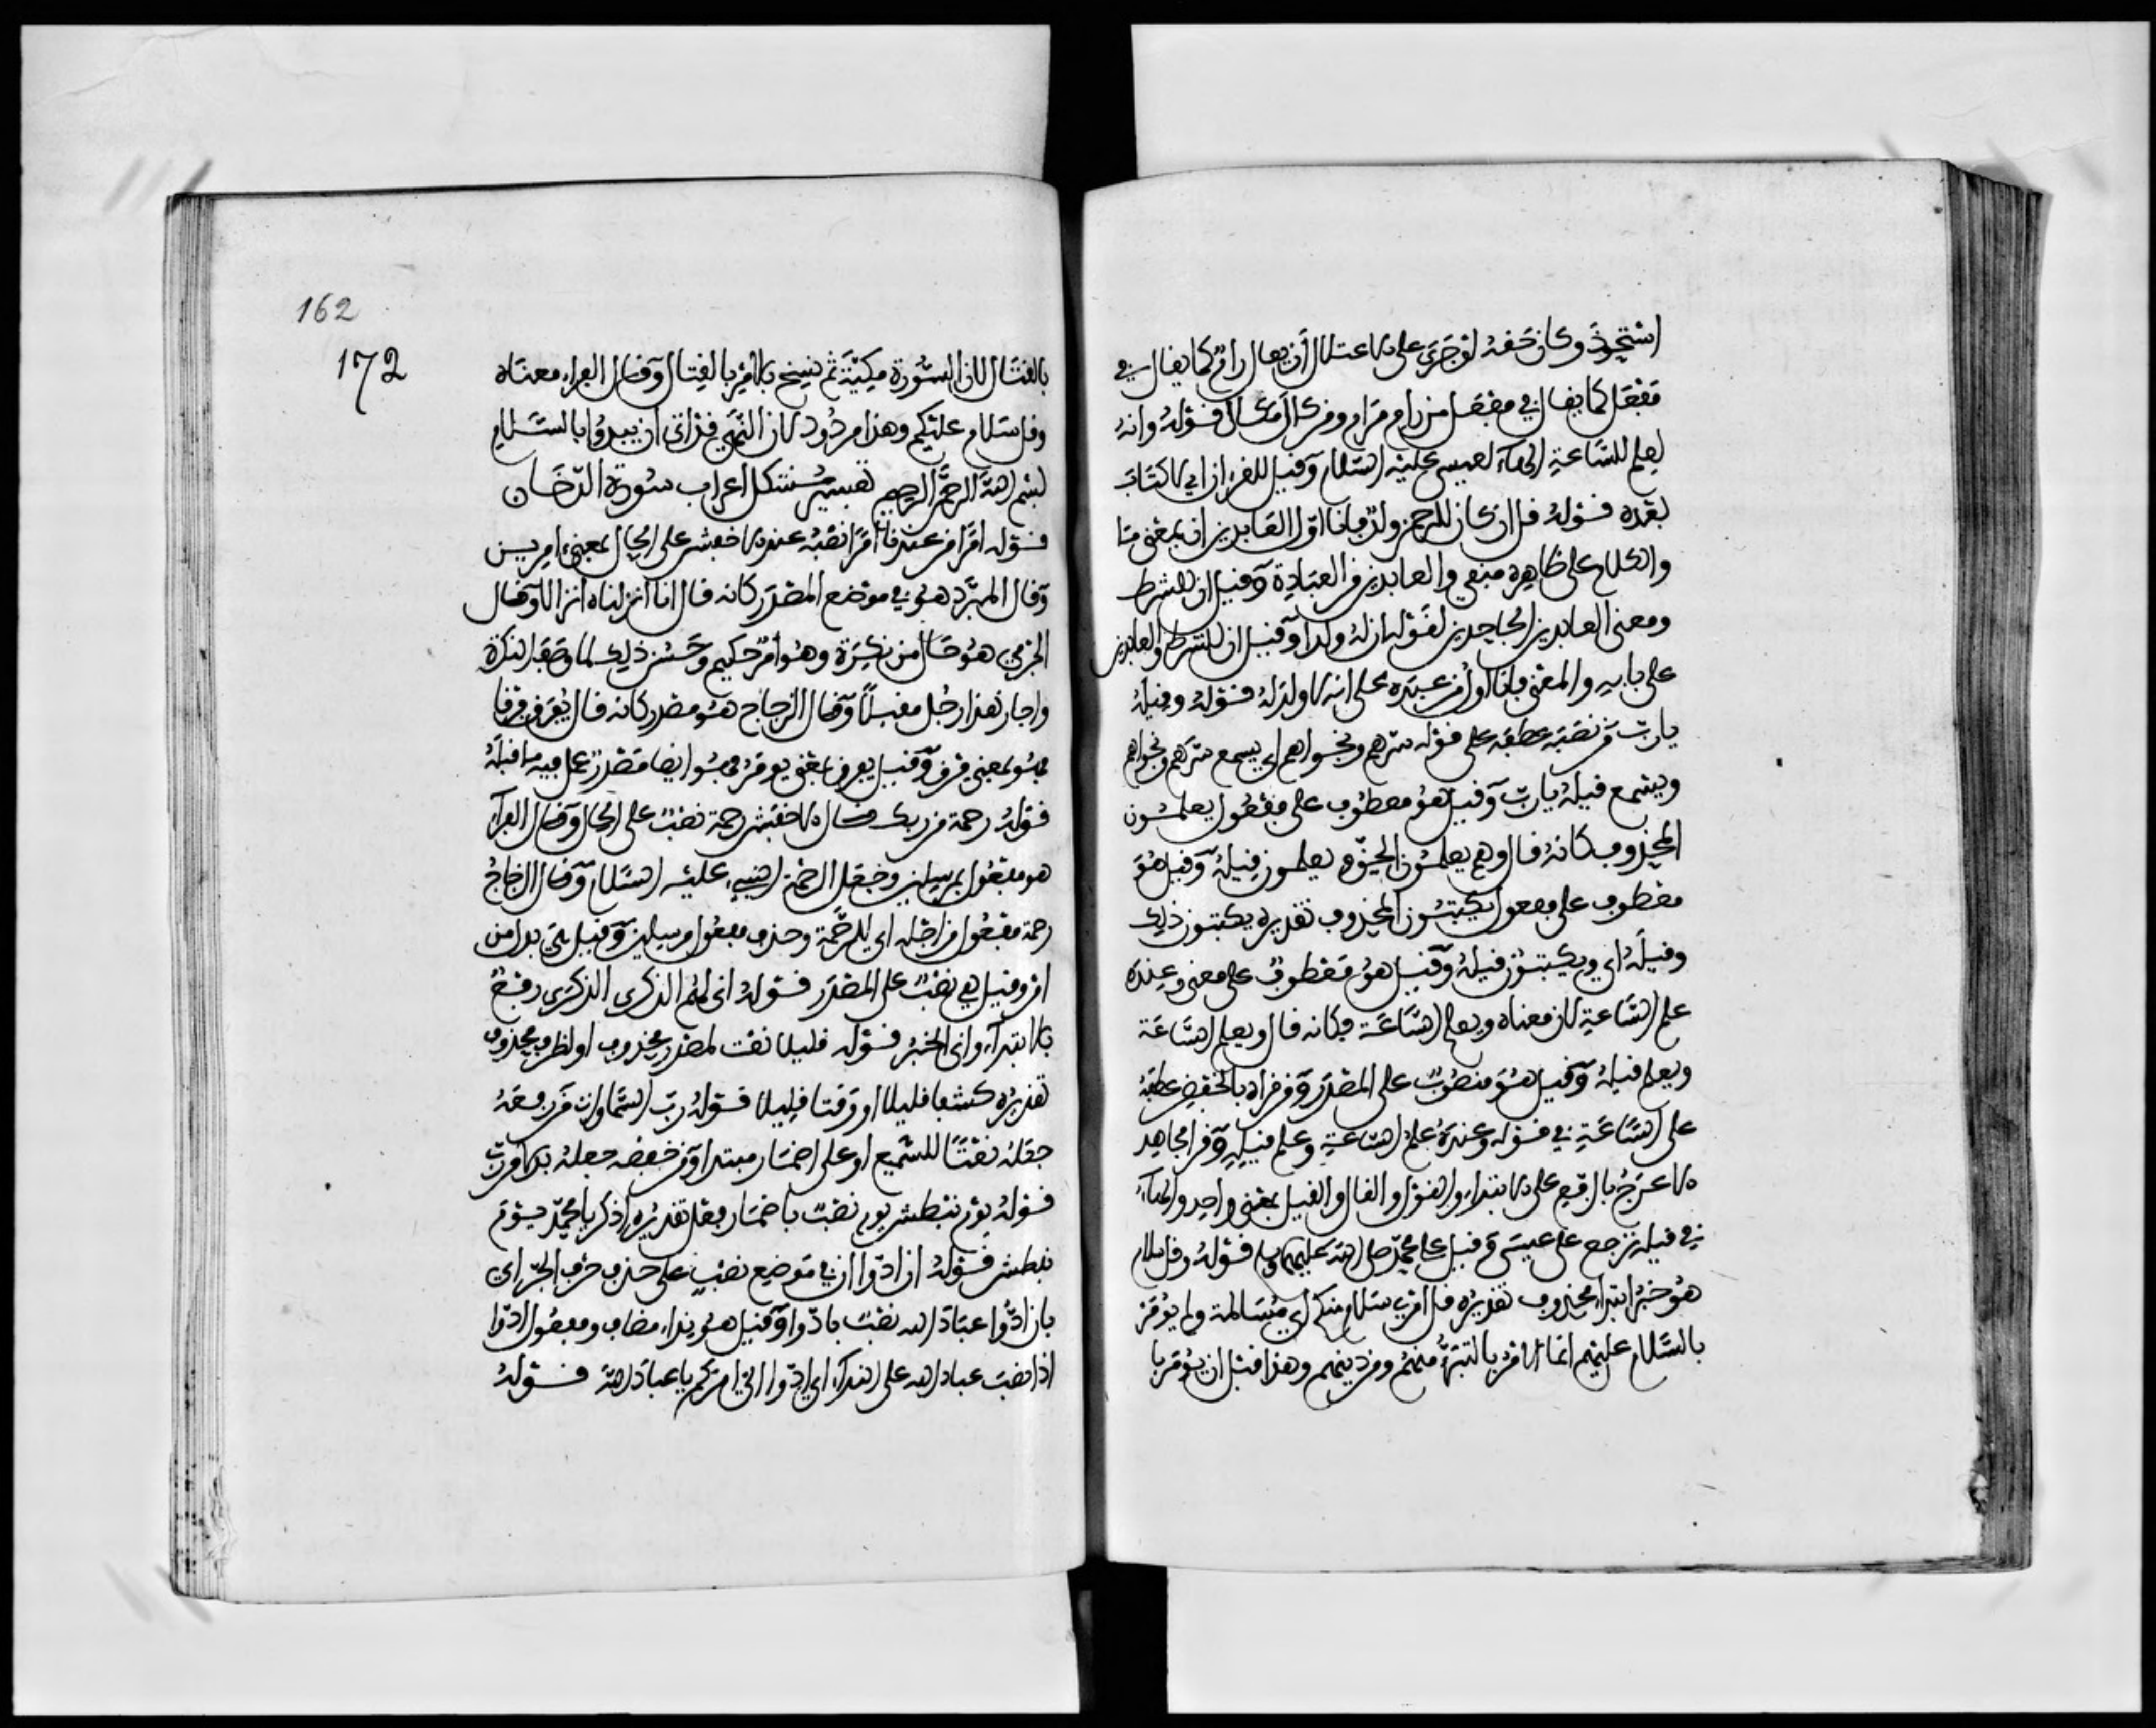 استحوذ وكان حقه لو جرى على الاعتلال أن يقال رام كما يقال في
مفعل كما يقال في مفعل من رام مرام ومن كال مكال قوله وانه
لعلم للساعة الهاء لعيسى عليه السلام وقيل للقرآن اي لا كتاب
بعده قوله قل ان كان للرحمن ولد فانا اول العابدين ان بمعنى ما
والكلام على ظاهره منفي والعابدين من العبادة وقيل ان للشرط
ومعنى العابدين الجاحدين لقولهم ان له ولدا وقيل ان للشرط والعابدين
على بابه والمعنى فانا أول من عبده على انه لا ولد له قوله وقيله
يارب من نصبه عطفه على قوله سرهم ونجواهم اي يسمع سرهم ونجواهم
ويسمع قيله يارب وقيل هو معطوف على مفعول يعلمون
المحذوف كانه قال وهم يعلمون الحق وهم يعلمون قيله وقيل هو
معطوف على مفعول يكتبون المحذوف تقديره يكتبون ذلك
وقيله اي ويكتبون قيله وقيل هو معطوف على معنى وعنده
علم الساعة لان معناه ويعلم الساعة فكانه قال ويعلم الساعة
ويعلم قيله وقيل هو منصوب على المصدر ومن قراه بالخفض عطفه
على الساعة في قوله وعنده علم الساعة وعلم قيله وقرا مجاهد
الاعرج بالرفع على الابتداء والقول والقال والقيل بمعنى واحد والهاء
في قيله ترجع على عيسى وقيل على محمد صلى الله عليهما وسلم قوله وقل سلام
هو خبر ابتداء محذوف تقديره قل امري سلام منكم أي مسالمة ولم يؤمر
بالسلام عليهم انما الامر بالتبرؤ منهم ومن دينهم وهذا قبل ان يؤمر با
162
172
بالقتال لان السورة مكية ثم نسخ بالامر بالقتال وقال الفراء معناه
وقل سلام عليكم وهذا مردود لان النهي قد اتى ان يبدؤا بالسلام
بسم الله الرحمن الرحيم تفسير مشكل اعراب سورة الدخان
قوله امرا من عندنا امرا نصبه عند الاخفش على الحال بمعنى امرين
وقال المبرد هو في موضع المصدر كانه قال انا انزلناه انزالا وقال
الجرمي هو حال من نكرة وهو أمر حكيم وحسن ذلك لما وصف النكرة
واجاز هذا رجل مقبلا وقال الزجاج هو مصدر كانه قال يفرق فرقا
فهو بمعنى فرق وقيل يفرق بمعنى يومر فهو ايضا مصدر عمل فيه ما قبله
قوله رحمة من ربك قال الاخفش رحمة نصب على الحال وقال الفراء
هو مفعول بمرسلين وجعل الرحمة النبيء عليه السلام وقال الزجاج
رحمة مفعول من اجله اي للرحمة وحذف مفعول مرسلين وقيل هي بدل من
امر وقيل هي نصب على المصدر قوله انى لهم الذكرى الذكرى رفع
بالابتداء وانى الخبر قوله قليلا نعت لمصدر محذوف او لظرف محذوف
تقديره كشفا قليلا او وقتا قليلا قوله رب السماوات من رفعه
جعله نعتا للسميع او على اضمار مبتدا ومن خفضه جعله بدلا من ربك
قوله يوم نبطش يوم نصب باضمار فعل تقديره اذكر يا محمد يوم
نبطش قوله ان ادوا ان في موضع نصب على حذف حرف الجر اي
بان ادوا عباد الله نصب بادوا وقيل هو نداء مضاف ومفعول ادوا
اذا نصب عباد الله على النداء اي ادوا الي امركم يا عباد الله قوله